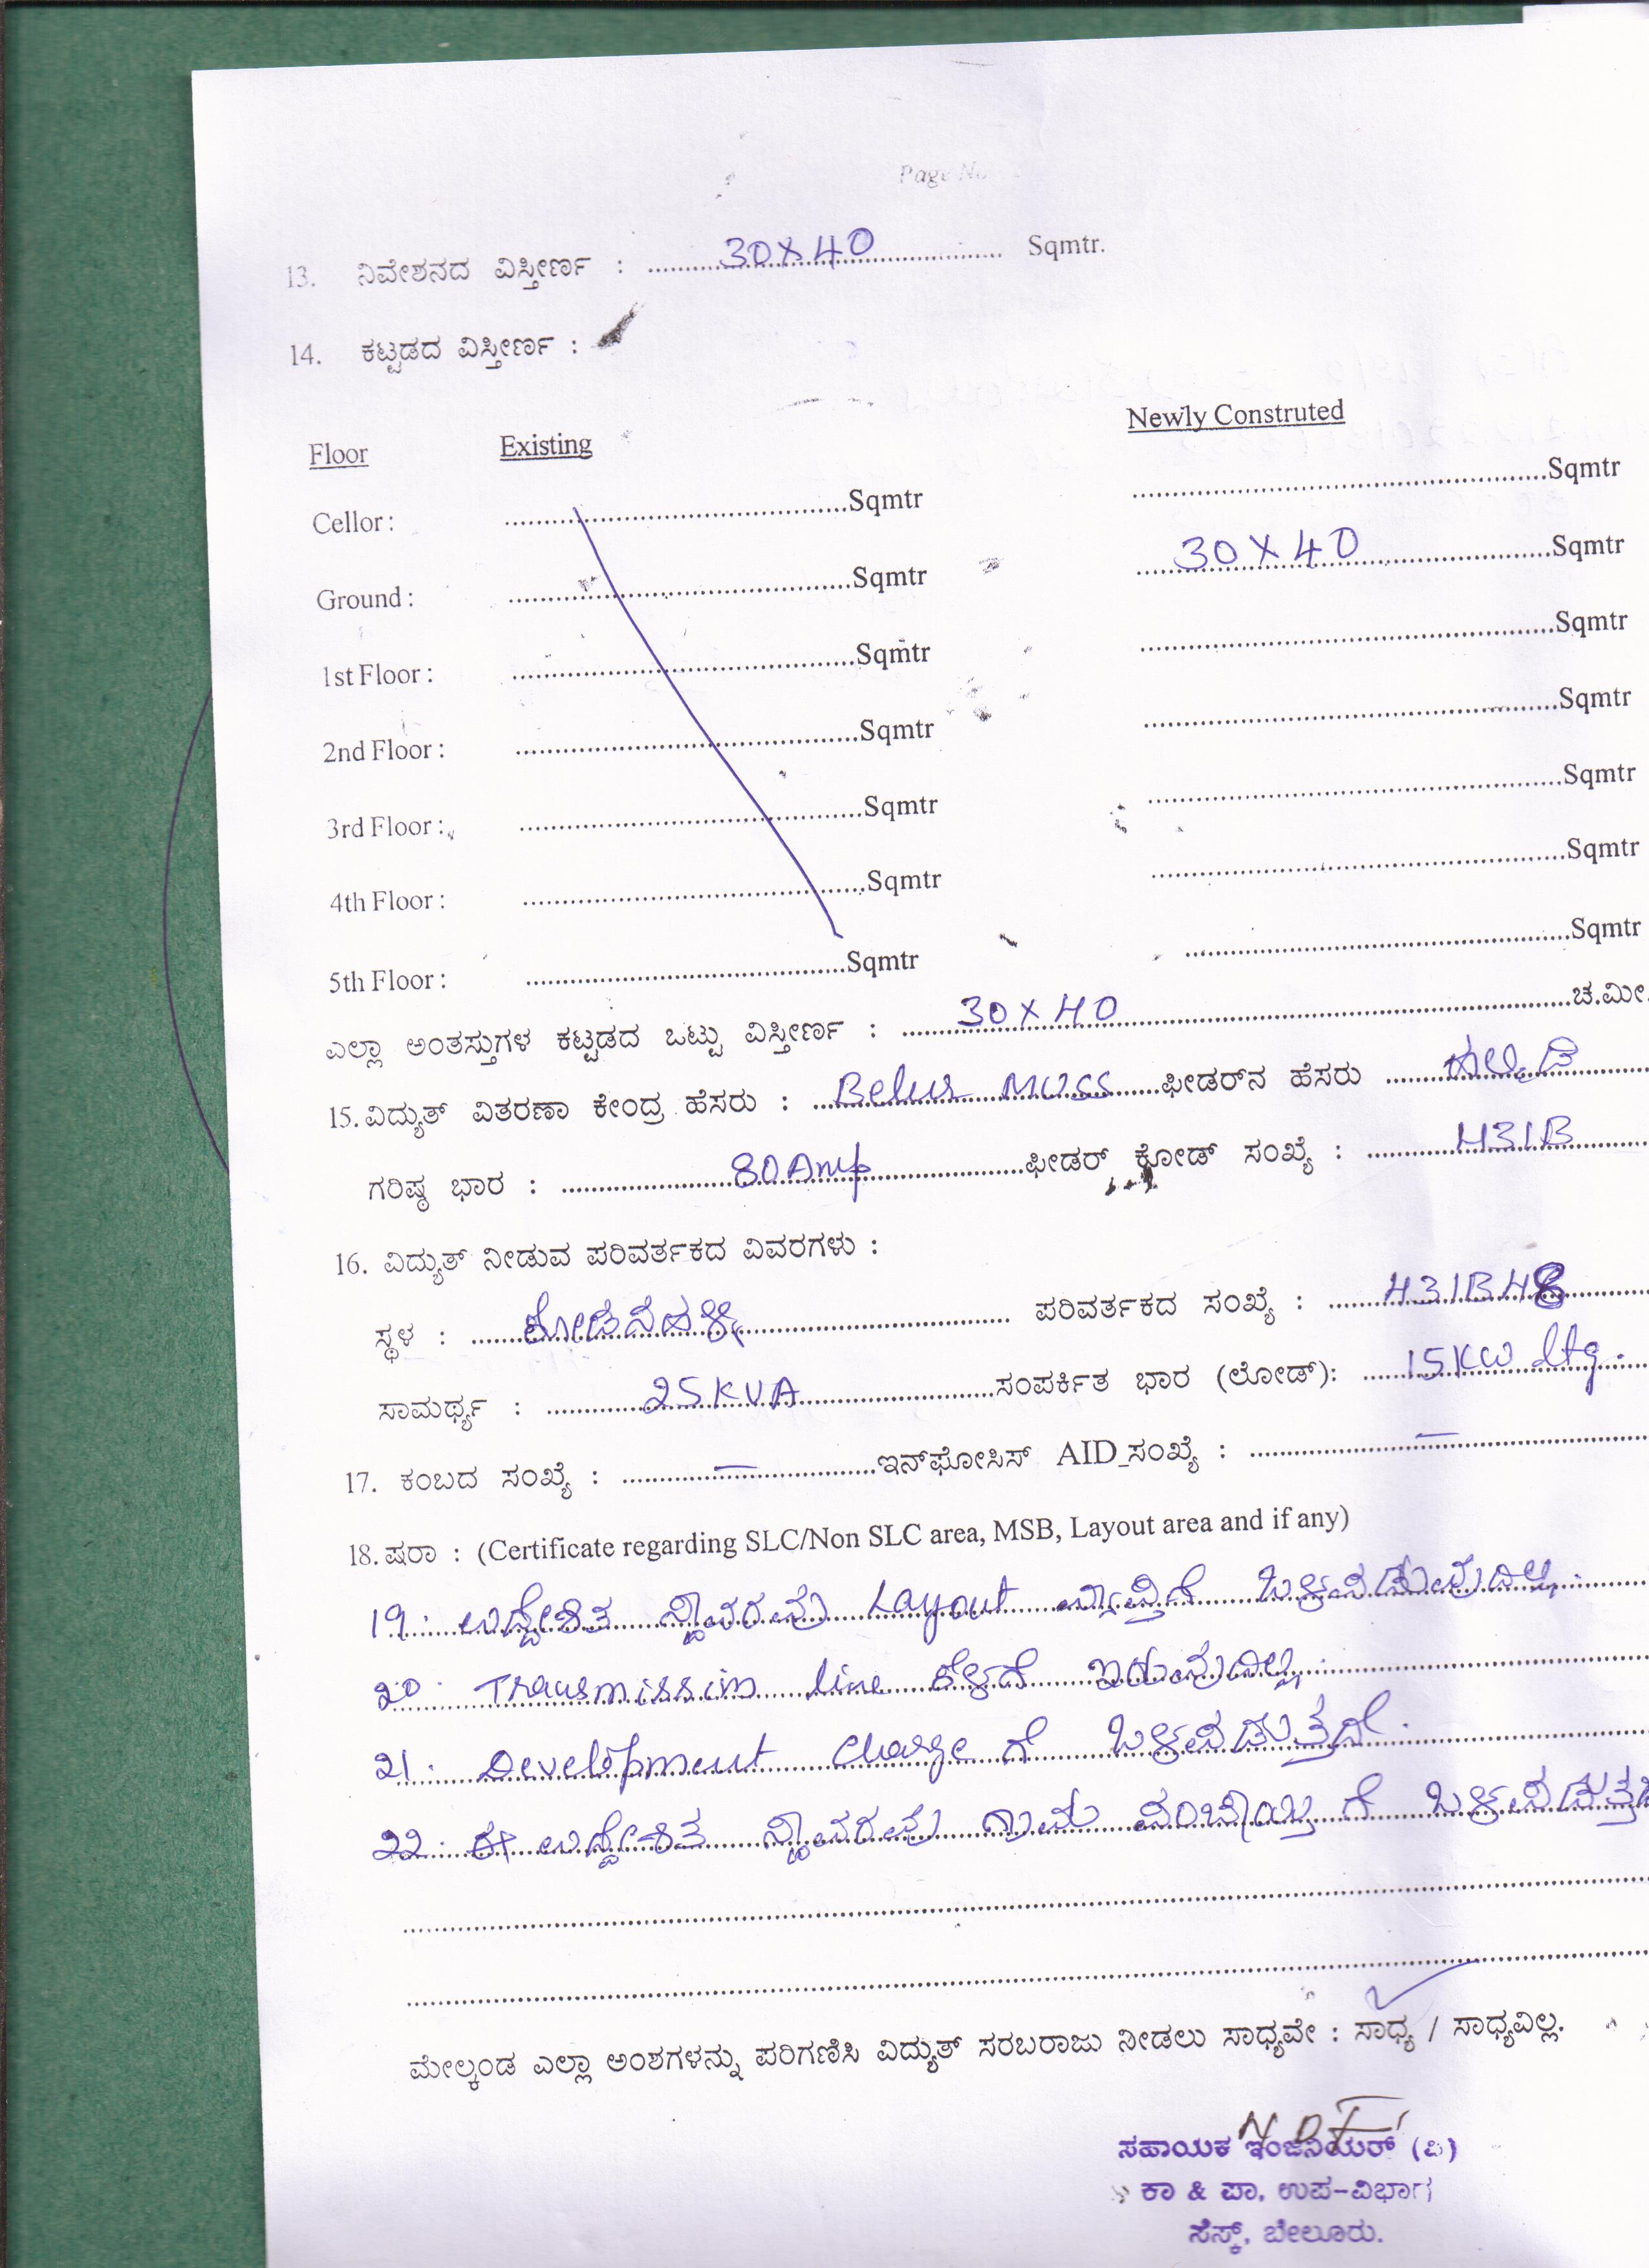 Page No
13. ನಿವೇಶನದ ವಿಸ್ತೀರ್ಣ : 30X40 Sqmtr.
14. ಕಟ್ಟಡದ ವಿಸ್ತೀರ್ಣ :
Floor Existing Newly Construted
Cellor : Sqmtr Sqmtr
Ground : Sqmtr 30X40 Sqmtr
1st Floor : Sqmtr Sqmtr
2nd Floor : Sqmtr Sqmtr
3rd Floor : Sqmtr Sqmtr
4th Floor : Sqmtr Sqmtr
5th Floor : Sqmtr Sqmtr
ಎಲ್ಲಾ ಅಂತಸ್ತುಗಳ ಕಟ್ಟಡದ ಒಟ್ಟು ವಿಸ್ತೀರ್ಣ : 30X40 ಚ.ಮೀ.
15. ವಿದ್ಯುತ್ ವಿತರಣಾ ಕೇಂದ್ರ ಹೆಸರು : Belur MUSS ಫೀಡರ್‌ನ ಹೆಸರು
ಗರಿಷ್ಠ ಭಾರ : 80Amp ಫೀಡರ್ ಕೋಡ್ ಸಂಖ್ಯೆ : H31B
16. ವಿದ್ಯುತ್ ನೀಡುವ ಪರಿವರ್ತಕದ ವಿವರಗಳು :
ಸ್ಥಳ : ಪರಿವರ್ತಕದ ಸಂಖ್ಯೆ : H31BH8
ಸಾಮರ್ಥ್ಯ : 25KVA ಸಂಪರ್ಕಿತ ಭಾರ (ಲೋಡ್): 15KW ltg.
17. ಕಂಬದ ಸಂಖ್ಯೆ : — ಇನ್‌ಫೋಸಿಸ್ AID_ಸಂಖ್ಯೆ : —
18. ಷರಾ : (Certificate regarding SLC/Non SLC area, MSB, Layout area and if any)
19. ಉದ್ದೇಶಿತ ಸ್ಥಾವರವು Layout ವ್ಯಾಪ್ತಿಗೆ ಒಳಪಡುವುದಿಲ್ಲ.
20. Transmission line ಕೆಳಗೆ ಇರುವುದಿಲ್ಲ.
21. Development charge ಗೆ ಒಳಪಡುತ್ತದೆ.
22. ಈ ಉದ್ದೇಶಿತ ಸ್ಥಾವರವು ಗ್ರಾಮ ಪಂಚಾಯ್ತಿ ಗೆ ಒಳಪಡುತ್ತದೆ
ಮೇಲ್ಕಂಡ ಎಲ್ಲಾ ಅಂಶಗಳನ್ನು ಪರಿಗಣಿಸಿ ವಿದ್ಯುತ್ ಸರಬರಾಜು ನೀಡಲು ಸಾಧ್ಯವೇ : ಸಾಧ್ಯ / ಸಾಧ್ಯವಿಲ್ಲ.
ಸಹಾಯಕ ಇಂಜಿನಿಯರ್ (ವಿ)
ಕಾ & ಪಾ. ಉಪ-ವಿಭಾಗ
ಸೆಸ್ಕ್, ಬೇಲೂರು.